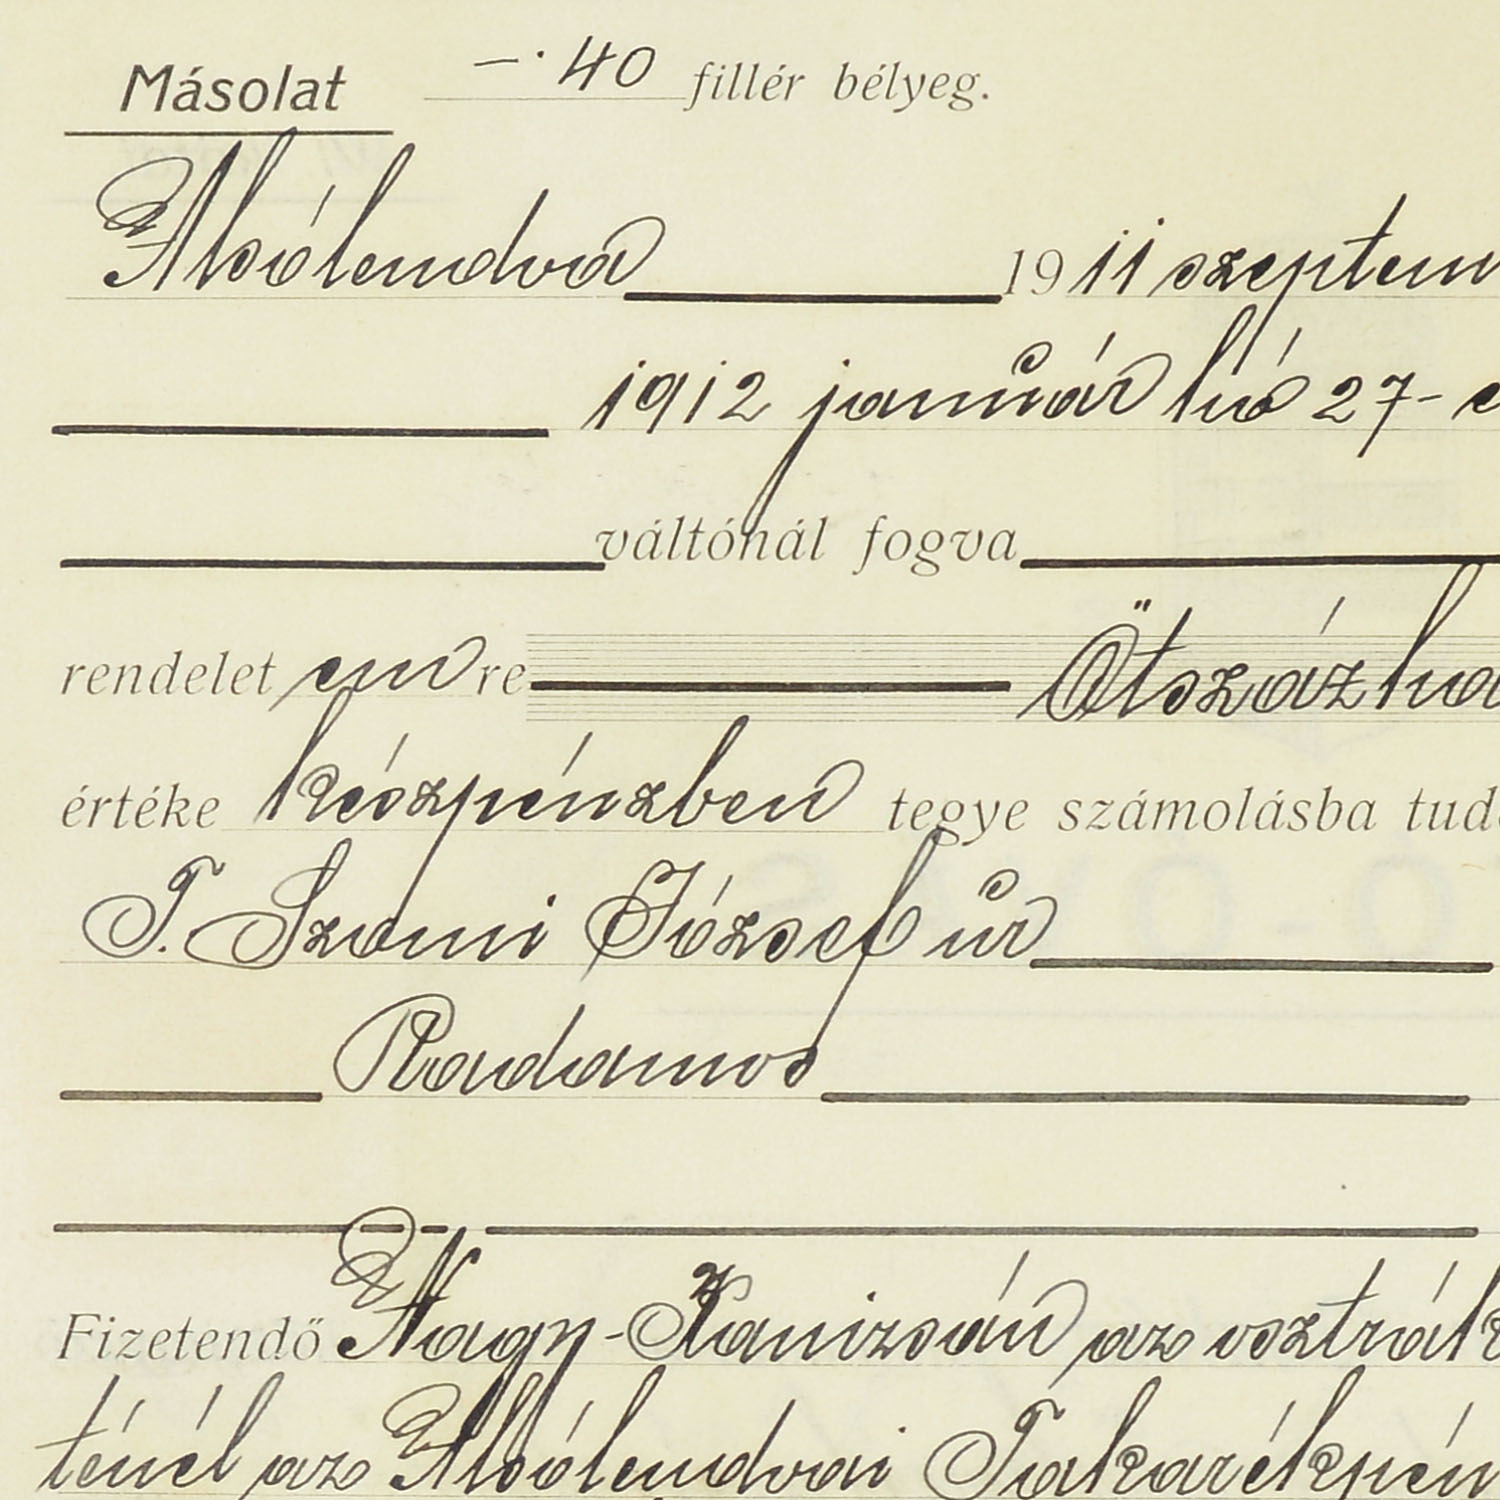 Másolat —·40 fillér bélyeg.
Alsólendva 1911 szeptem
1912 január hó 27-
váltónál fogva
rendelet en re Ötszáz
értéke készpénzben tegye számolásba tud
T. Szomi József úr
Radamos
Fizetendő Nagy-Kanizsán az osztrák
ténél az Alsólendvai Takarékpén